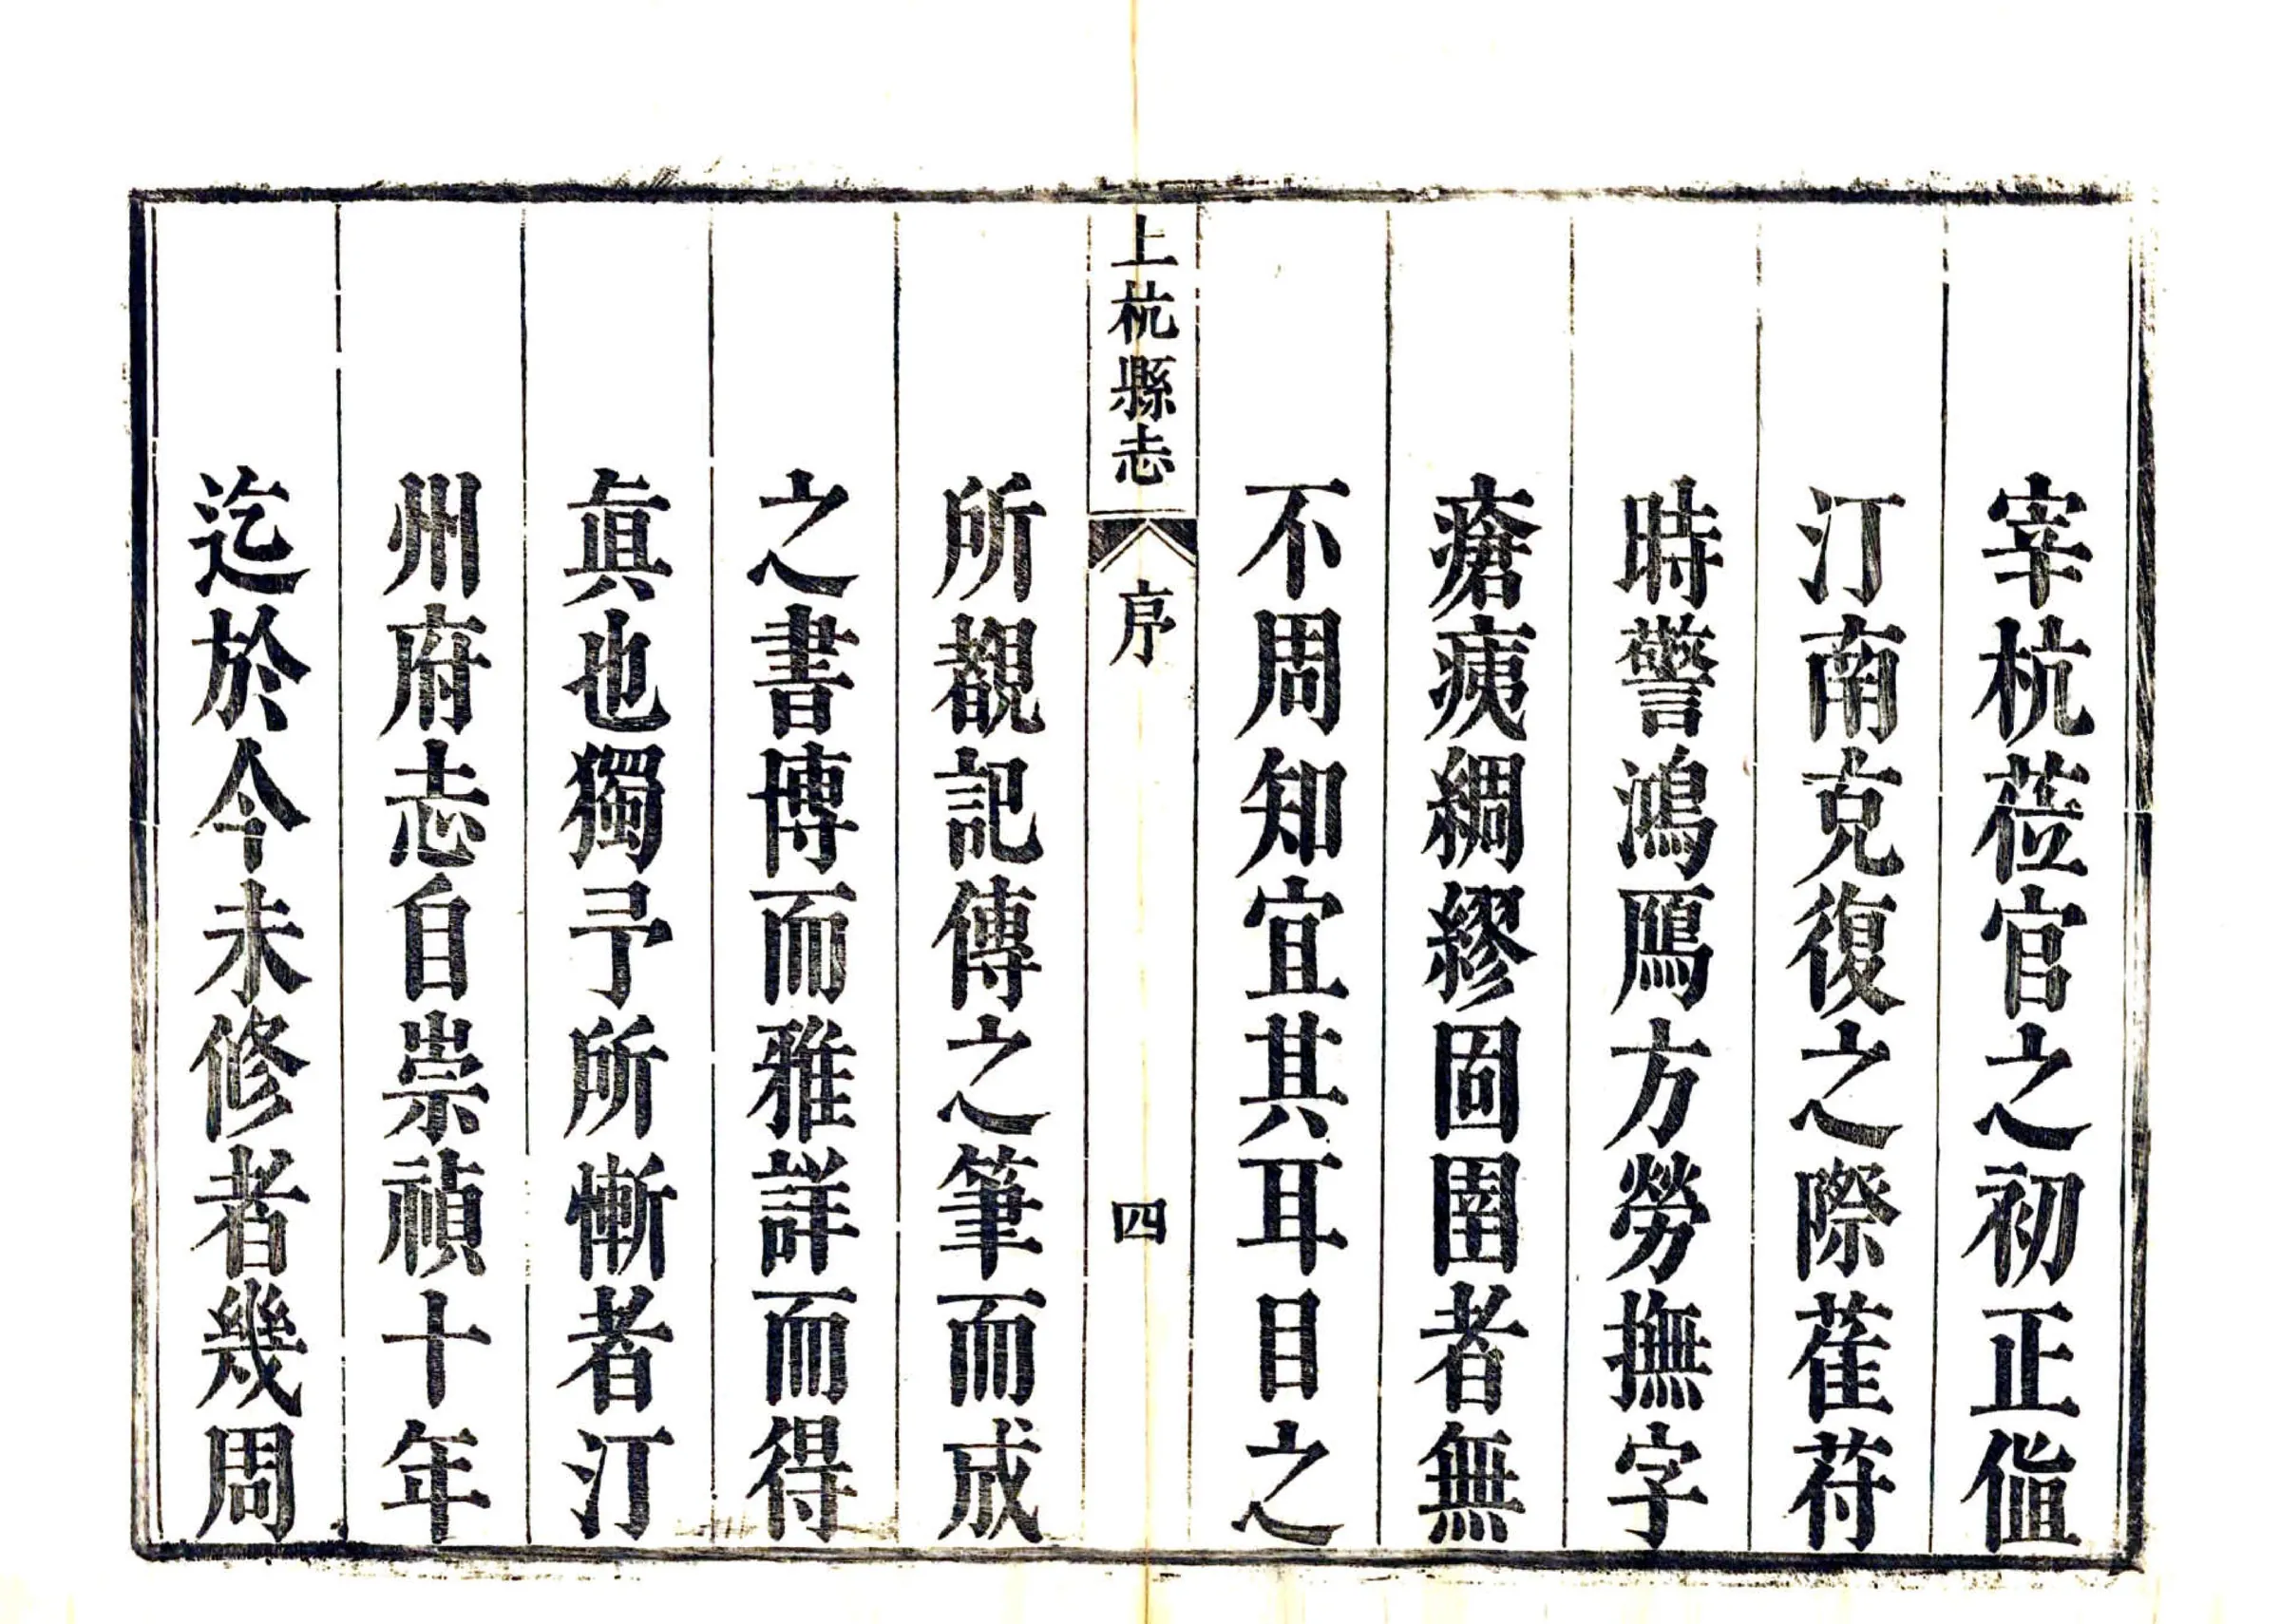 宰杭莅官之初正值
汀南克復之際萑苻
時警鴻鴈方勞撫字
瘡痍綢繆固圉者無
不周知宜其耳目之
上杭縣志 序 四
所覩記傳之筆而成
之書博而雅詳而得
眞也獨予所慚者汀
州府志自崇禎十年
迄於今未修者幾周